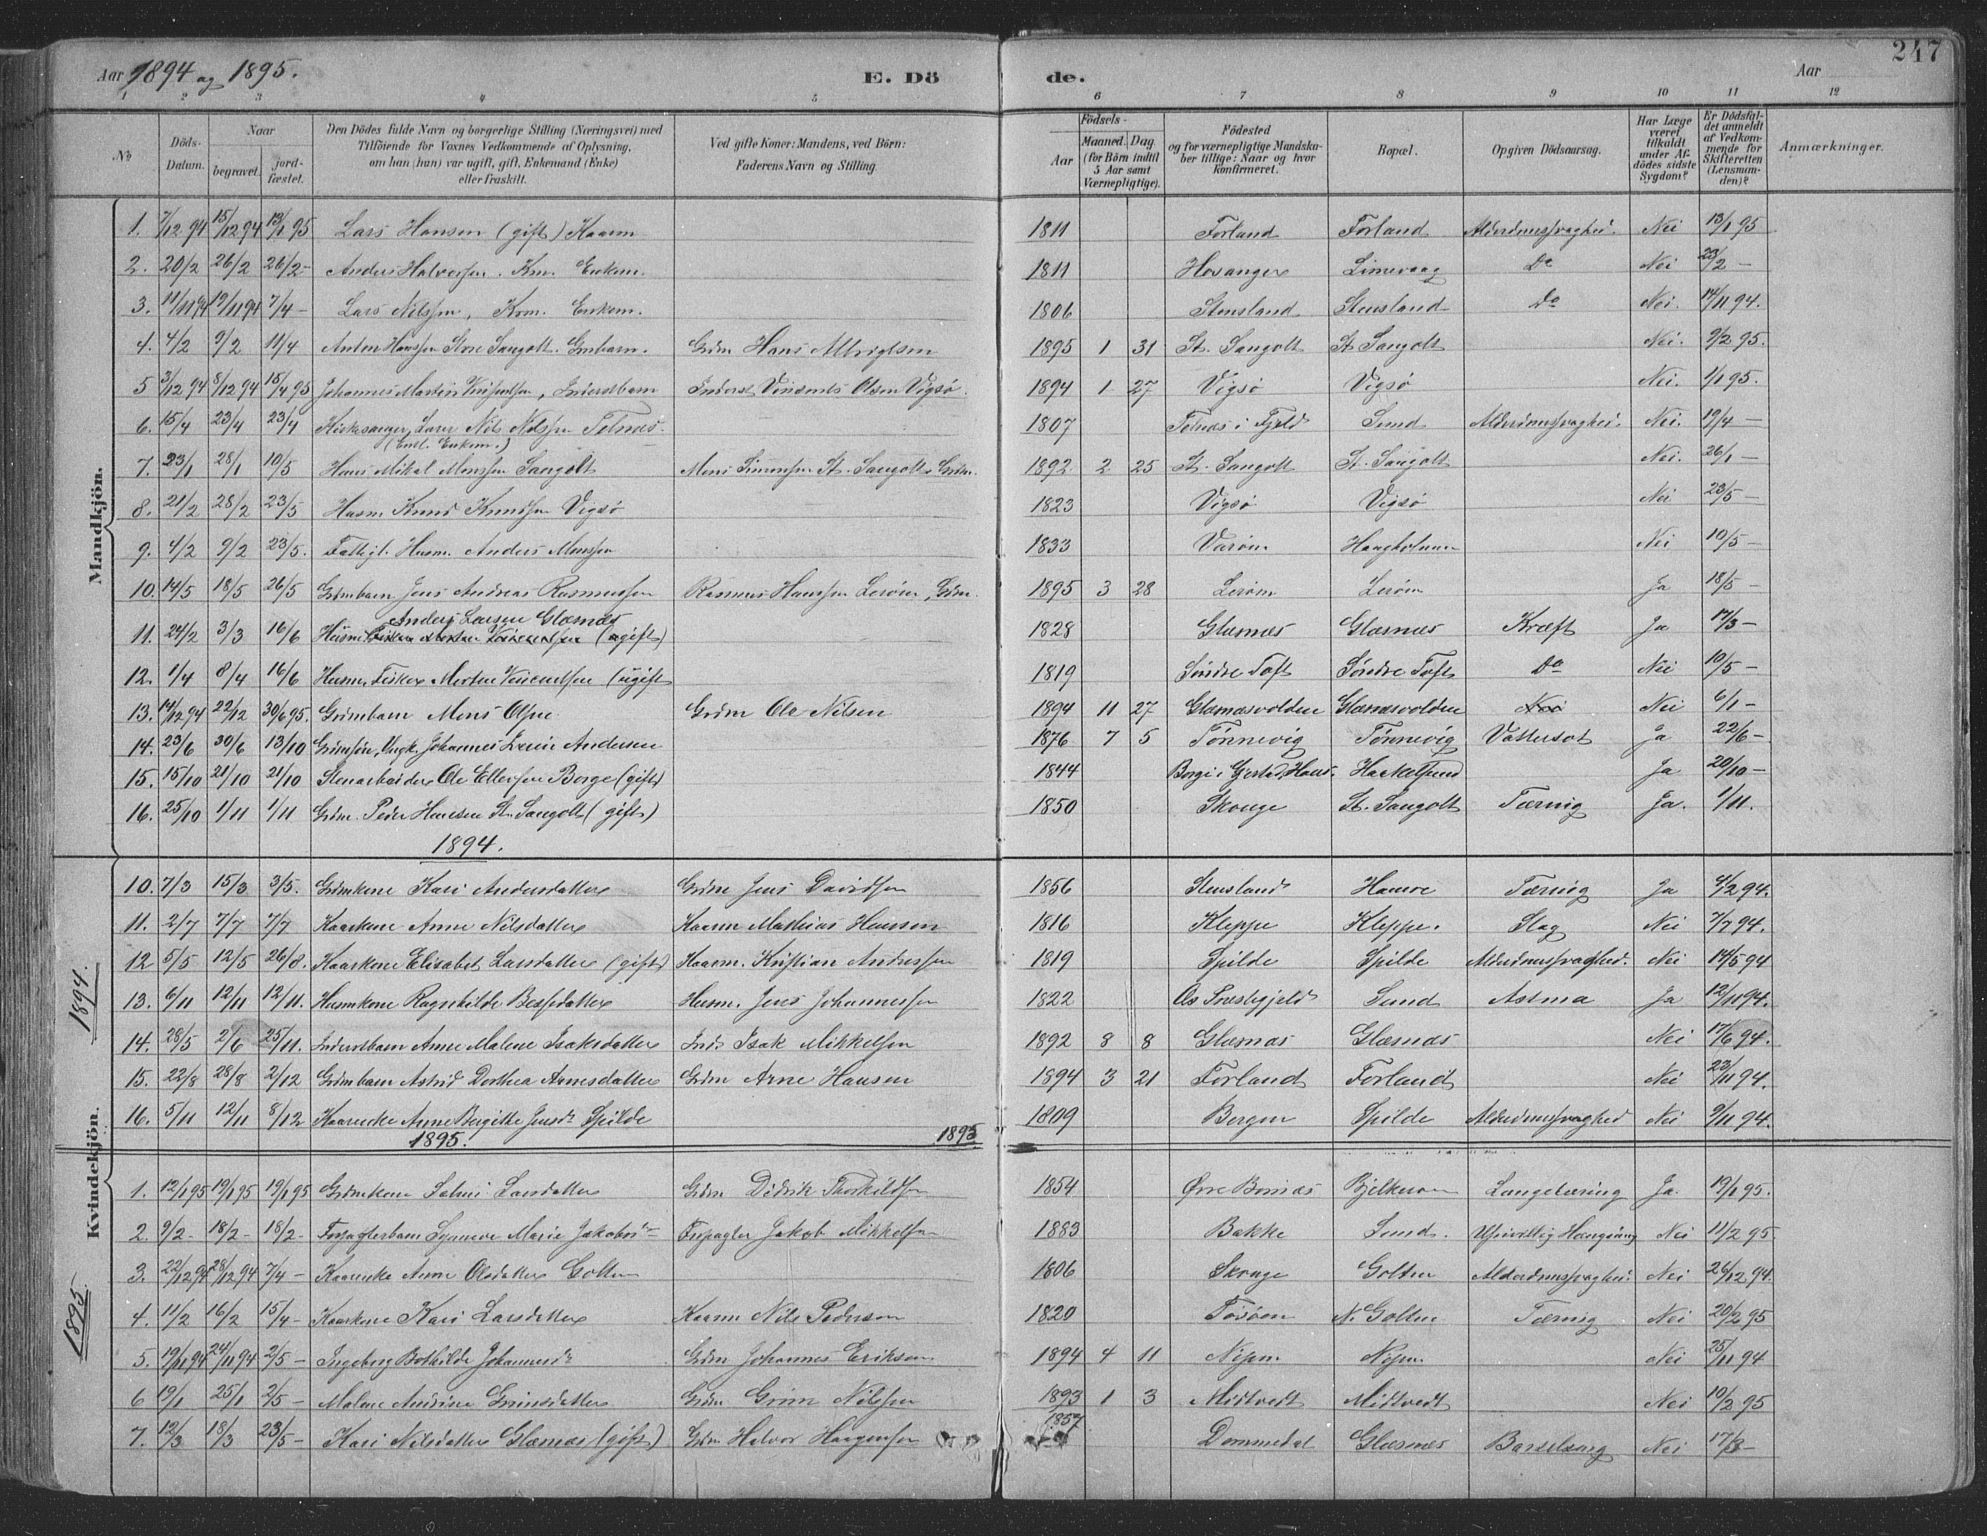 247
Aar 1894 og 1895. E. Dö de. Aar
1 2 3 4 5 6 7 8 9 10 11 12
No Döds-Datum. Naar begravet. jordfæstet. Den Dödes fulde Navn og borgerlige Stilling (Næringsvei) med Tilföiende for Voxnes Vedkommende af Oplysning, om han (hun) var ugift, gift, Enkemand (Enke) eller fraskilt. Ved gifte Koner: Mandens, ved Börn: Faderens Navn og Stilling. Födsels- Aar Maaned. Dag (for Börn indtil 5 Aar samt Værnepligtige). Födested og for værnepligtige Mandskaber tillige: Naar og hvor konfirmeret. Bopæl. Opgiven Dödsaarsag. Har Læge været tilkaldt under Afdödes sidste Sygdom? Er Dödsfaldet anmeldt af Vedkommende for Skifteretten (Lensmanden)? Anmærkninger.
Mandkjön.
1. 7/12 94 15/12 94 13/1 95 Lars Hansen (gift) Kaarm 1811 Forland Forland Alderdomssvaghed. Nei 13/1 95
2. 20/2 26/2 26/2 - Anders Halvorsen. Km. Enkem. 1811 Hovanger Limevaag Do Nei 23/2 -
3. 11/11 94 19/11 94 7/4 - Lars Nilssen, Krm. Enkem. 1806 Stensland Stensland Do Nei. 14/11 94.
4. 4/2 9/2 11/4 Anton Hanssen Store Sangolt. Gmbarn. Grdm Hans Albrigtsen 1895 1 31 St. Sangolt St Sangolt Nei. 9/2 95.
5 3/12 94 8/12 94 15/4 95 Johannes Martin Vinsentsen, Inderstbarn Inderst Vinsents Olsen Vigsø. 1894 1 27 Vigsø Vigsø Nei. 1/1 95.
6. 15/4 23/4 23/4 Kirkesanger, Lærer Nils Nilssen Telnæs. (Emt. Enkem.) 1807 Telnæs i Fjeld Sund Alderdomssvaghed. Nei. 19/4 -
7. 23/1 28/1 10/5 Hans Mikal Monssen Sangolt Mons Simonsen St. Sangolt, Grdm. 1892 2 25 St. Sangolt St. Sangolt Nei. 26/1 -
8. 21/2 28/2 23/5 Husm Knud Knudsen Vigsø 1823 Vigsø Vigsø Nei 23/5 -
9. 4/2 9/2 23/5. Fattigl. Husm. Anders Monsen 1833 Værøen Haagholmen Nei 10/5 -
10. 14/5 18/5 26/5 Grdmbarn Jens Andreas Rasmussen Rasmus Hanssen Lerøen, Grdm. 1895 3 28 Lerøen Lerøen Ja 18/5 -
11. 24/2 3/3 16/6 Husm Anders Larsen Glæsnæs (ugift) 1828 Glæsnes Glæsnes Kræft Ja 17/3 -
12. 1/4 8/4 16/6 Husm, Fisker Morten Vincentsen (ugift) 1819 Søndre Toft Søndre Toft Do Nei 10/5 -
13. 14/12 94 22/12 30/6 95. Grdmbarn Mons Olsen Grdm Ole Nilsen 1894 11 27 Glæsnæsvolden Glæsnæsvolden Nei Nei 6/1 -
14. 23/6 30/6 13/10 Grdmsøn, Ungk. Johannes Andersen 1876 7 5 Tønnevig Tønnevig Vattersot Ja 22/6 -
15. 15/10 21/10 21/10 Stenarbeider Ole Ellefsen Borge (gift) 1844 Borge i Gjerstad, Haus. Hackelsund Ja 20/10 -
16. 25/10 1/11 1/11 Grdm. Peder Hansen St. Sangolt (gift) 1850 Skouge St. Sangolt Tæring Ja. 1/11.
1894.
1894.
Kvindekjön.
10. 7/3 15/3 3/5. Grdmkone Kari Andersdatter Grdm Jens Davidsen 1856 Stensland Hamre Tæring Ja 4/2 94.
11. 2/7 7/7 7/7 Kaarkone Anne Nilsdatter Kaarm Mathias Hansen 1816 Kleppe Kleppe. Slag Nei 7/7 94.
12 5/5 12/5 26/8. Kaarkone Elisabet Larsdatter (gift) Kaarm. Kristian Anderssen 1819 Spilde Spilde Alderdomssvaghed. Nei 14/5 94
13. 6/11 12/11 12/11. Husmkone Ragnhilde Bessesdatter Husm. Jens Johannessen 1822 Os Præstegjeld Sund Astma Ja 12/11 94.
14. 28/5 2/6 25/11. Inderstbarn Anne Malene Isaksdatter Inds Isak Mikkelsen 1892 8 8 Glæsnæs Glæsnæs Nei 17/6 94.
15. 22/8 28/8 2/12 Grdmbarn Astrid Dorthea Arnesdatter Grdm Arne Hansen 1894 3 21 Forland Forland Nei 23/11 94.
16. 5/11 12/11 8/12 Kaarenke Anne Bergitte Jensdr Spilde 1809 Bergen Spilde Alderdomssvaghed Nei 9/11 94.
1895. 1895
1895.
1. 12/1 95 19/1 95 19/1 95 Grdmkone Salmi Larsdatter Grdm Didrik Thorkildsen 1854 Øvre Bornæs Bjelkerøen Lungetæring Ja. 19/1 95.
2. 9/2 - 18/2 - 18/2 - Forpagterbarn Synneve Marie Jakobsdr Forpagter Jakob Mikkelsen 1883 Bakke Sund. Ufrivillig Hængning Nei 11/2 95
3. 22/12 94 28/12 94 7/4 - Kaarenke Anne Olsdatter Golten 1806 Skouge Golten Alderdomssvaghed. Nei 26/12 94.
4. 11/2 16/2 15/4 - Kaarkone Kari Larsdatter Kaarm Nils Pedersen 1820 Tøsøen N. Golten Tæring Nei 20/2 95
5. 19/11 94 24/11 94 2/5 - Ingeborg Bothilde Johannesdr Grdm Johannes Eriksen 1894 4 11 Nipen Nipen Nei 25/11 94
6 19/1 25/1 2/5 - Malene Andrine Grimsdatter Grdm Grim Nilssen 1893 1 3 Midtvedt Midtvedt Nei 10/2 95
7. 12/3 18/3 23/5 - Kari Nilsdatter Glæsnæs (gift) Grdm Halvor Haagensen 1857 Dommedal Glæsnæs Barselseng Nei 17/3 -